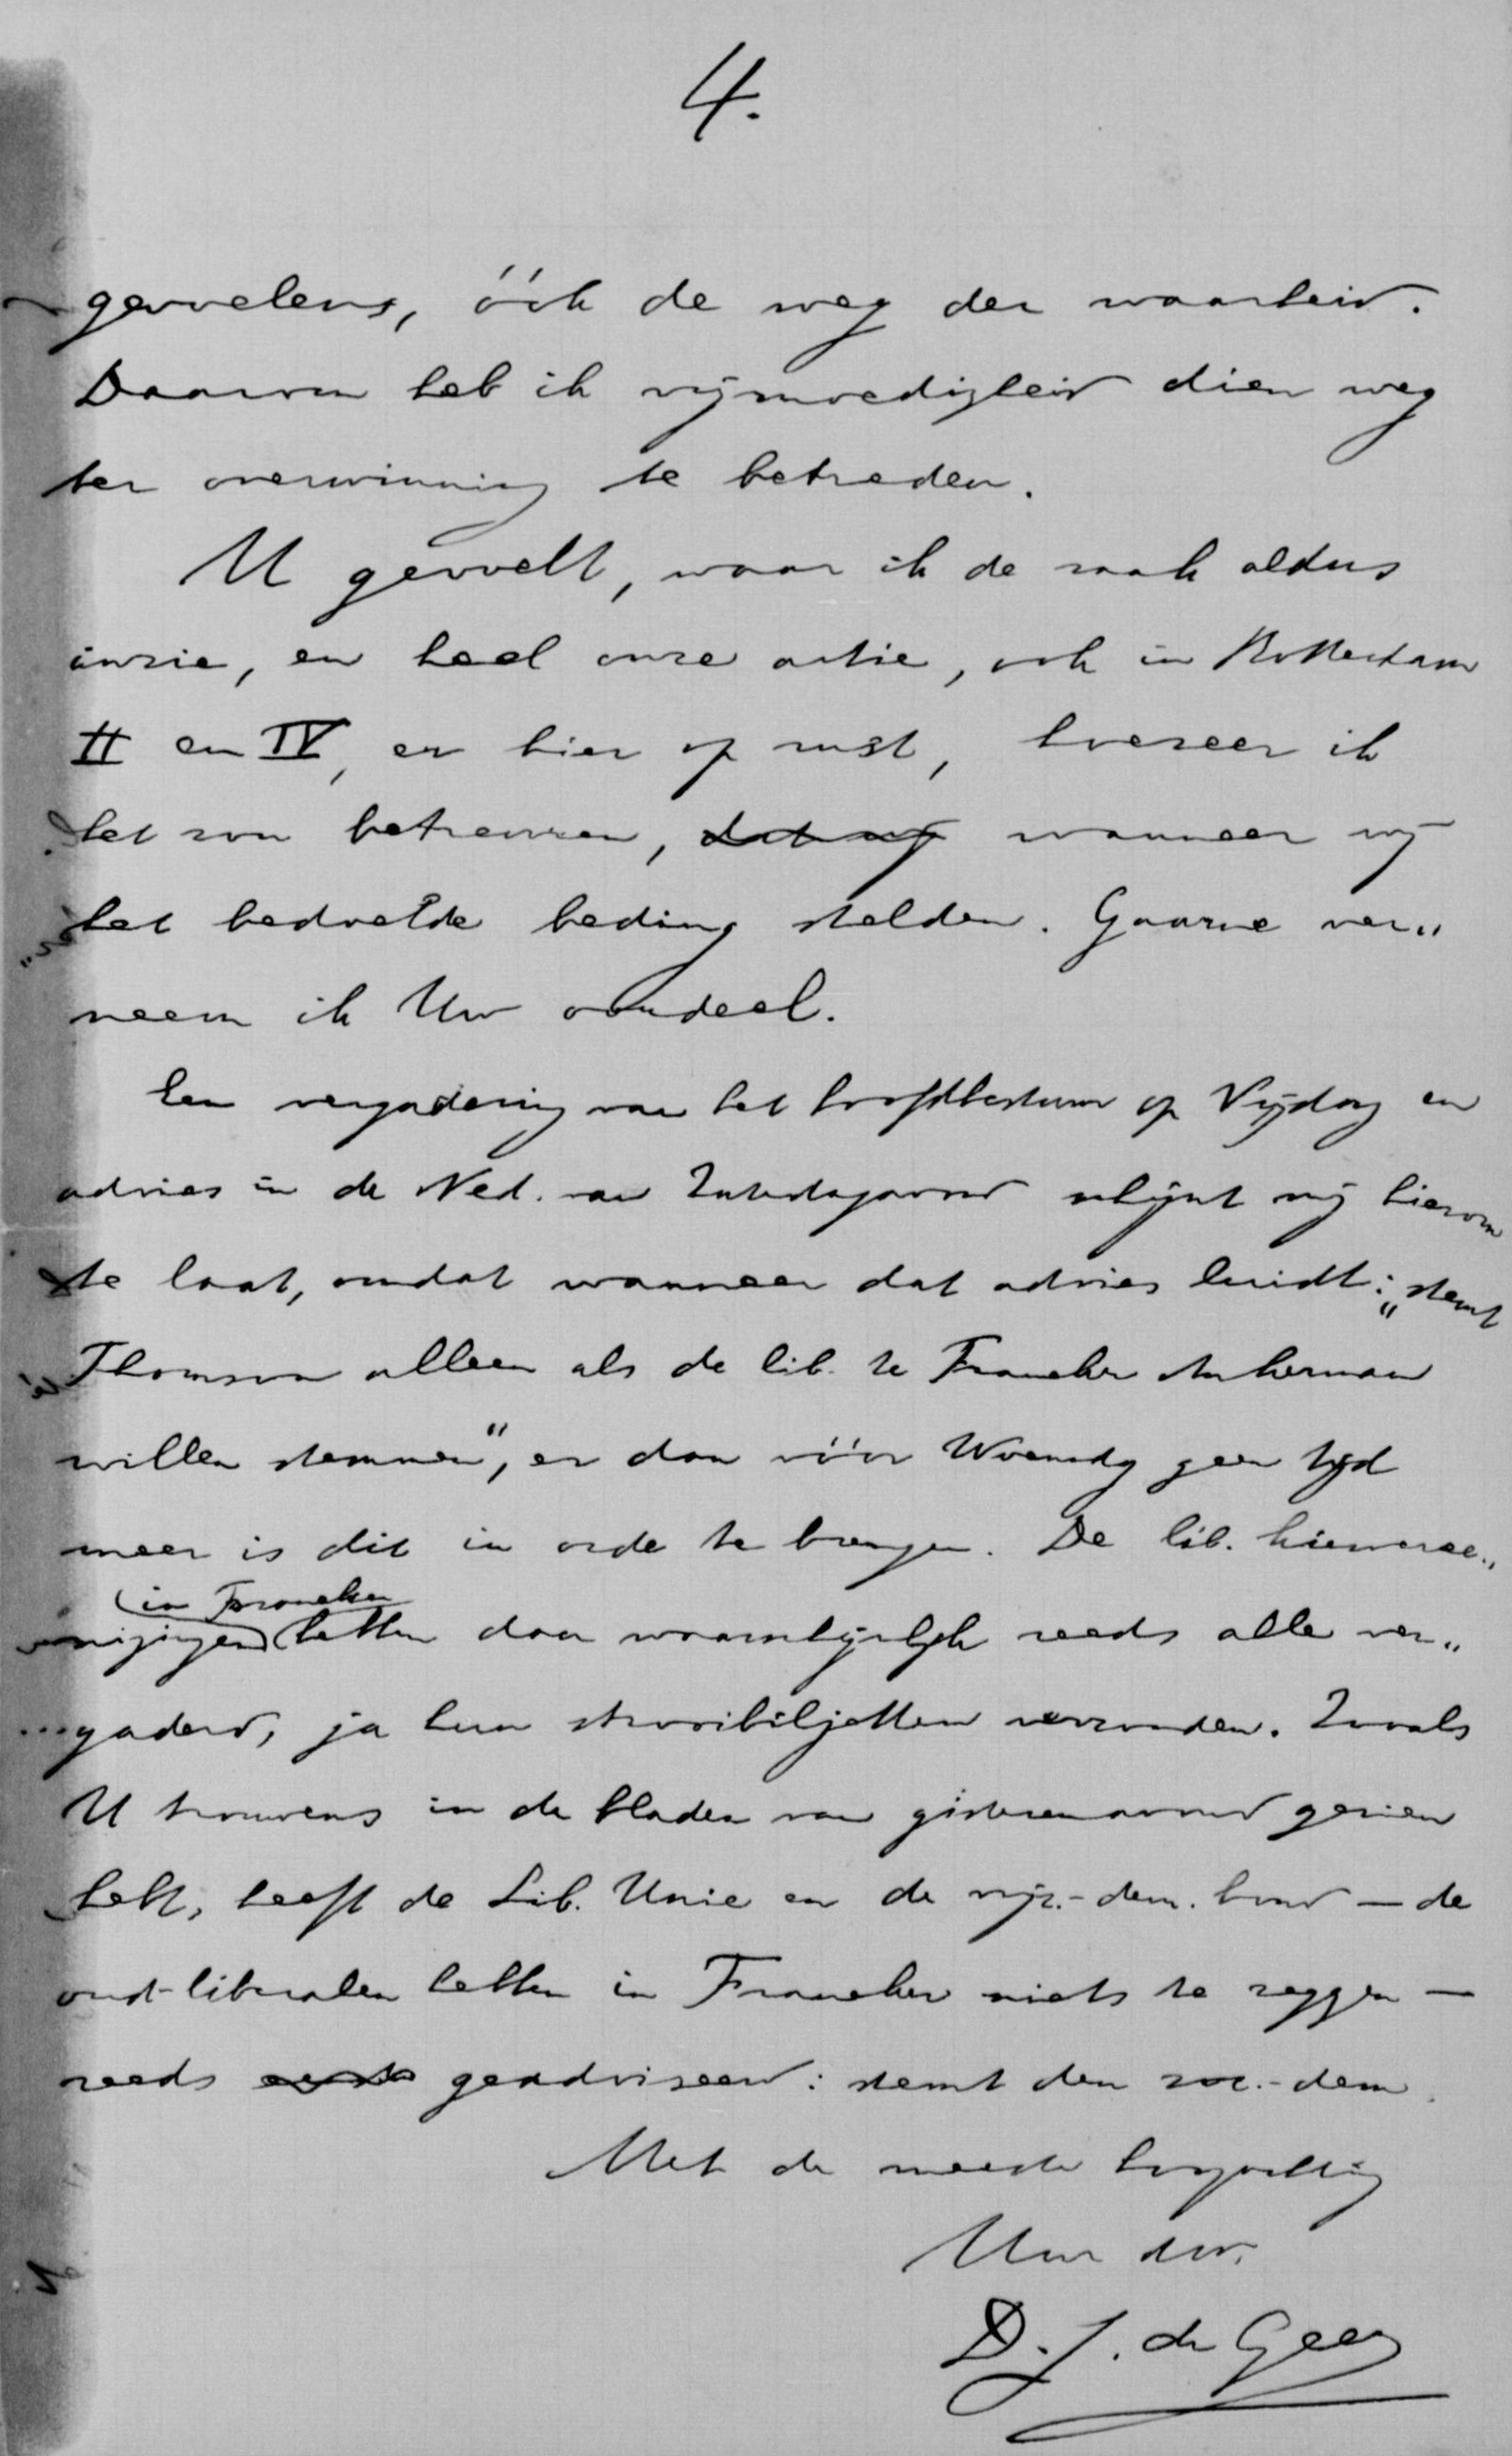 4.
gevoelens, óók de weg der waarheid.
Daarom heb ik vrijmoedigheid dien weg
ter overwinning te betreden.
U gevoelt, waar ik de zaak aldus
inzie, en heel onze actie, ook in Rotterdam
II en IV, er hier op rust, hoezeer ik
het zou betreuren, dat wij wanneer wij
het bedoelde beding stelden. Gaarne ver„
neem ik Uw oordeel.
Een vergadering van het hoofdbestuur op Vrijdag en
advies in de Ned. van Zaterdagavond schijnt mij hierom
te laat, omdat wanneer dat advies luidt: „stemt
Thomson alleen als de lib. te Franeker Ankerman
willen stemmen", er dan vóór Woensdag geen tijd
meer is dit in orde te brengen. De lib. kiesveree„
(in Franeker
nigingen hebben daar waarschijnlijk reeds alle ver„
gaderd, ja hun strooibiljetten verzonden. Zooals
U trouwens in de bladen van gisterenavond gezien
hebt, heeft de Lib. Unie en de vrijz.-dem. bond — de
oud-liberalen hebben in Franeker niets te zeggen —
reeds geadviseerd: stemt den soc.-dem.
Met de meeste hoogachting
Uw dw.
D. J. de Geer